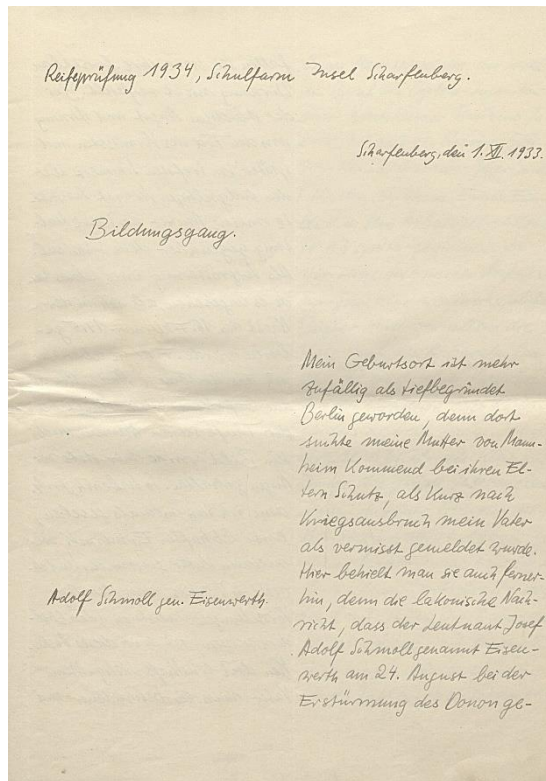 Reifeprüfung 1934, Schulfarm Insel Scharfenberg.
Scharfenberg, den 1. XII. 1933.
Bildungsgang.
Mein Geburtsort ist mehr
zufällig als tiefbegründet
Berlin geworden, denn dort
suchte meine Mutter von Mann-
heim kommend bei ihren El-
tern Schutz, als kurz nach
Kriegsausbruch mein Vater
als vermisst gemeldet wurde.
Hier behielt man sie auch ferner-
hin, denn die lakonische Nach-
richt, dass der Leutnant Josef
Adolf Schmoll genannt Eisen-
werth am 24. August bei der
Erstürmung des Donon ge-
Adolf Schmoll gen. Eisenwerth.